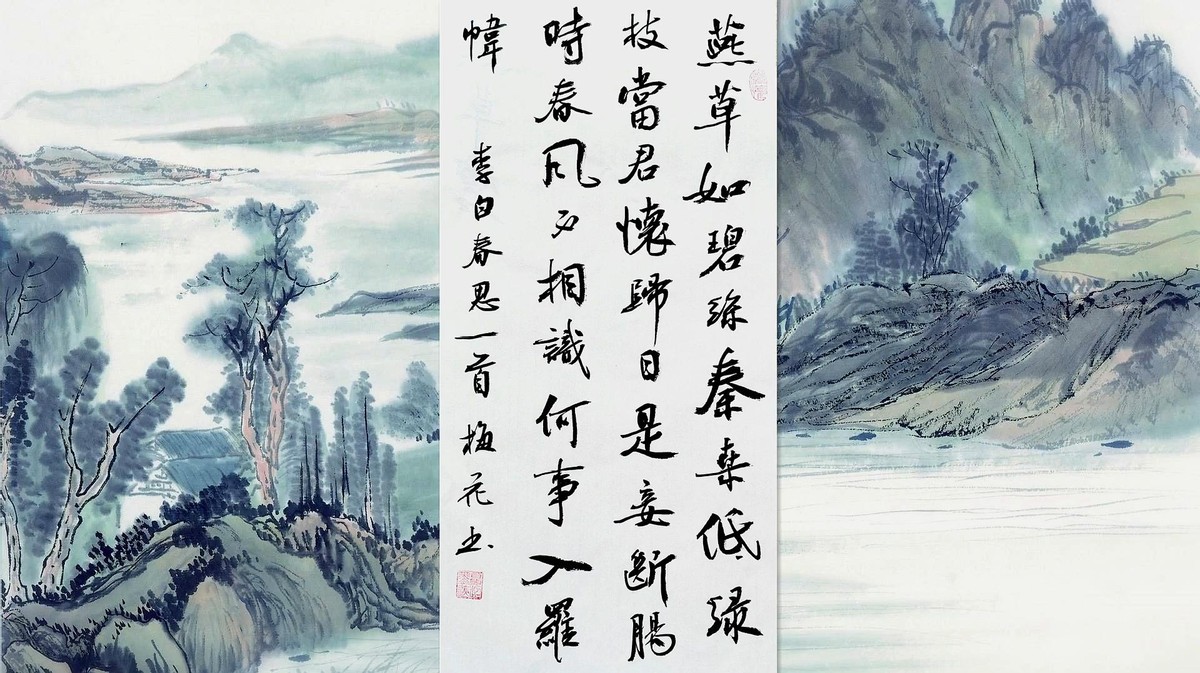 燕草如碧絲秦桑低綠
枝當君懷歸日是妾斷腸
時春风不相識何事入羅
幃 李白春思一首 梅花书